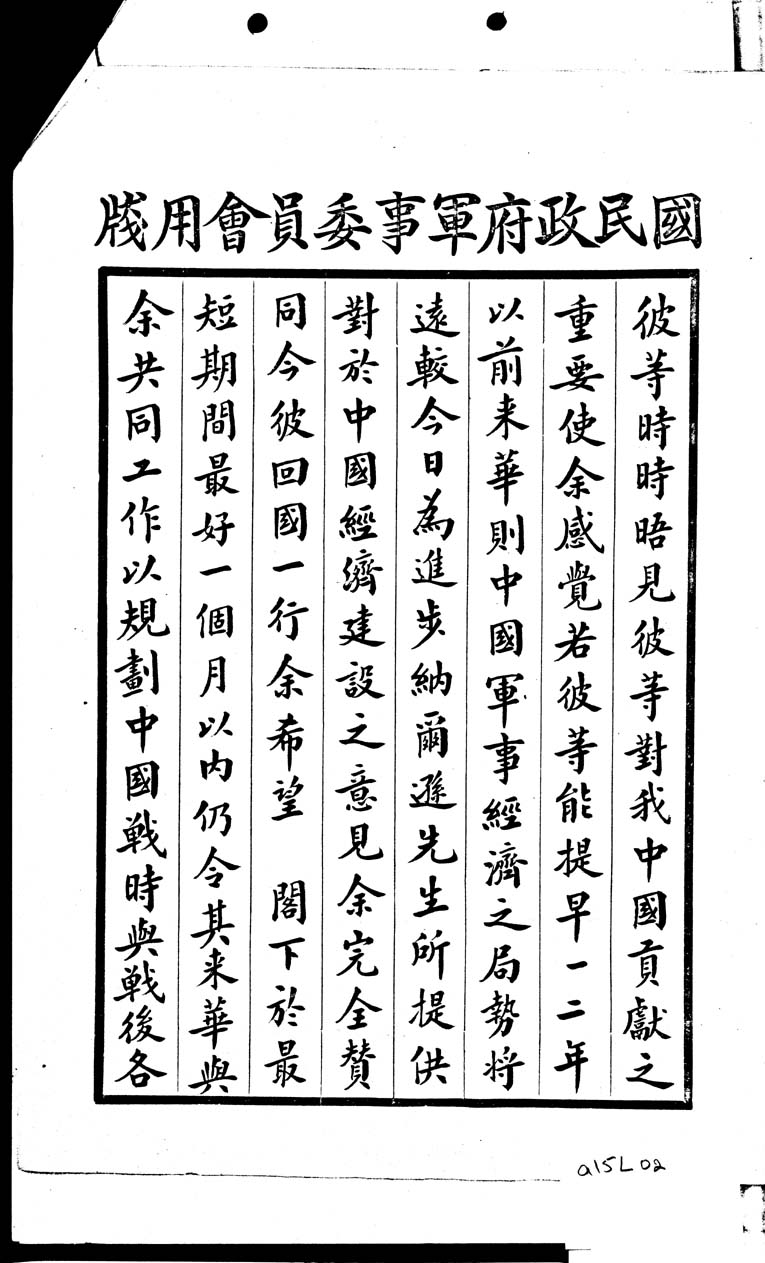 國民政府軍事委員會用牋
彼等時時晤見彼等對我中國貢獻之
重要使余感覺若彼等能提早一二年
以前来華則中國軍事經濟之局勢將
遠較今日為進步納爾遜先生所提供
對於中國經濟建設之意見余完全贊
同今彼回國一行余希望 閣下於最
短期間最好一個月以内仍令其来華與
余共同工作以規劃中國戰時與戰後各
a15L02